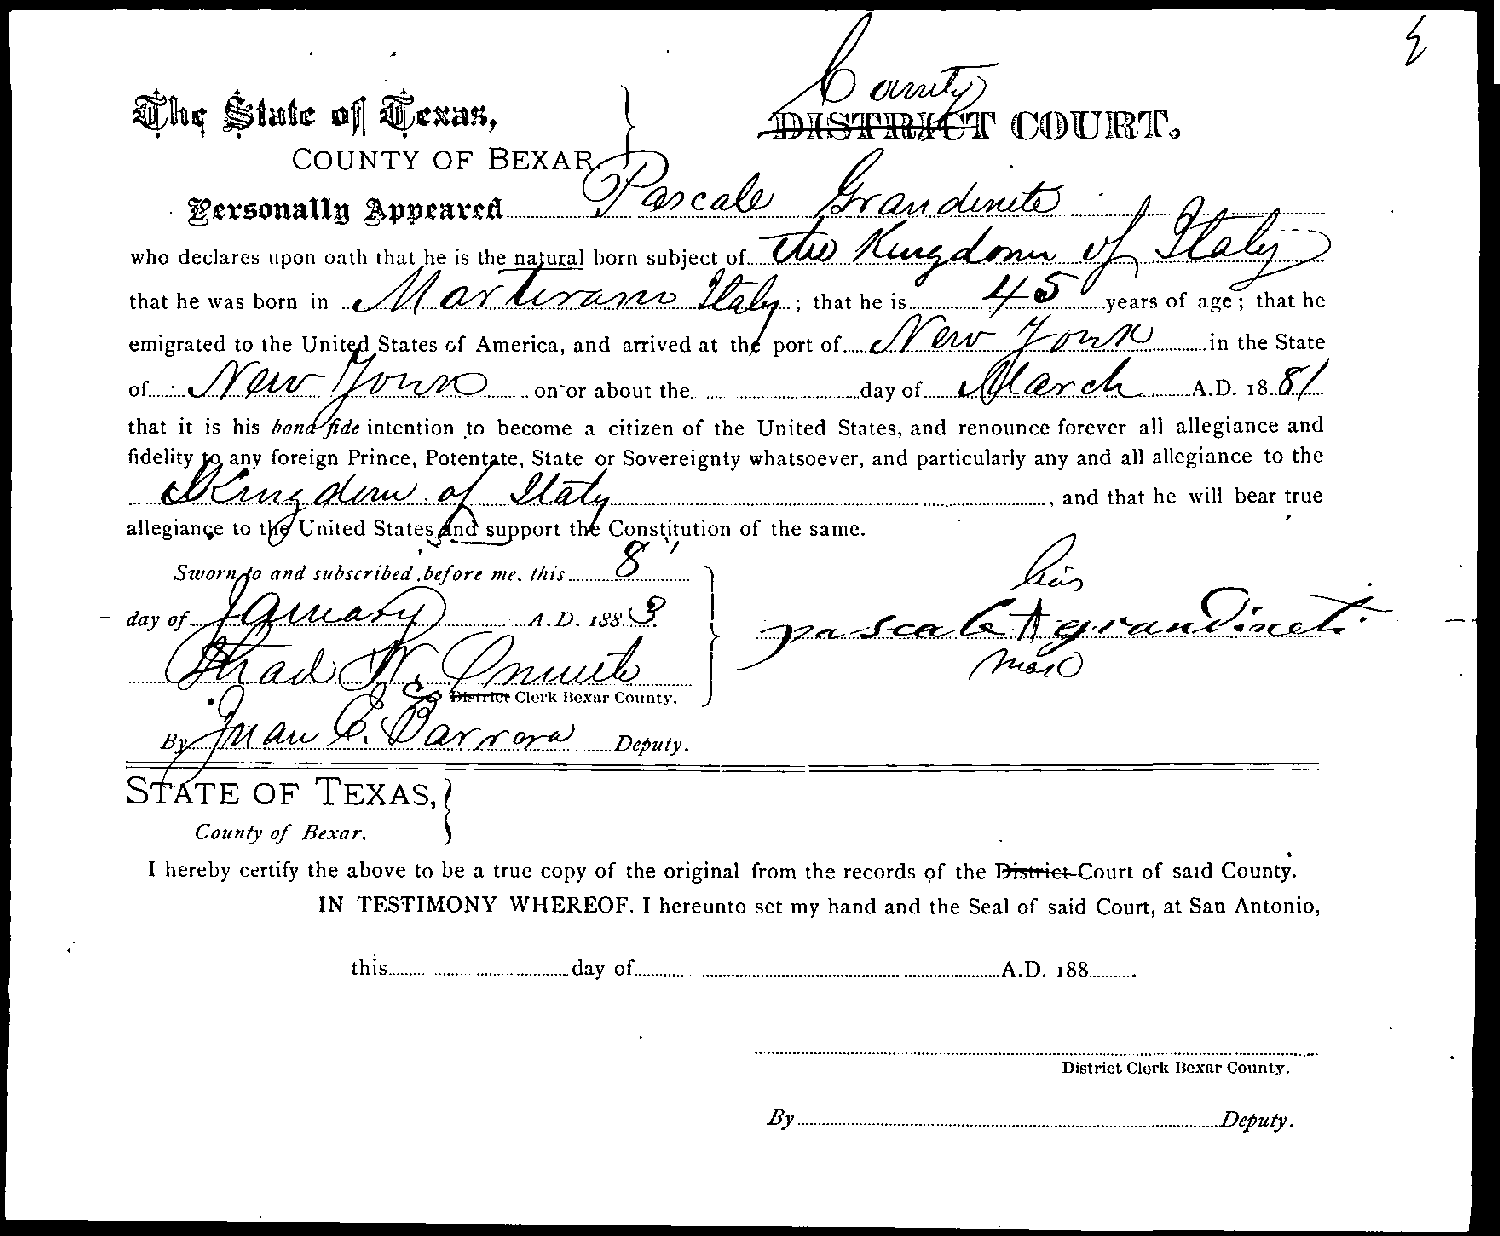 County
The State of Texas, } DISTRICT COURT.
COUNTY OF BEXAR
Personally Appeared Pascale Grandinete
who declares upon oath that he is the natural born subject of the Kingdom of Italy
that he was born in Martirano Italy; that he is 45 years of age; that he
emigrated to the United States of America, and arrived at the port of New York in the State
of New York on or about the day of March A.D. 1881
that it is his bona fide intention to become a citizen of the United States, and renounce forever all allegiance and
fidelity to any foreign Prince, Potentate, State or Sovereignty whatsoever, and particularly any and all allegiance to the
Kingdom of Italy, and that he will bear true
allegiance to the United States and support the Constitution of the same.
Sworn to and subscribed before me, this 8
day of January A.D. 1883
his
pascale grandineti
mark
Thad W.
Co District Clerk Bexar County.
By Juan E. Barrera Deputy.
STATE OF TEXAS, }
County of Bexar.
I hereby certify the above to be a true copy of the original from the records of the District Court of said County.
IN TESTIMONY WHEREOF, I hereunto set my hand and the Seal of said Court, at San Antonio,
this day of A.D. 188
District Clerk Bexar County.
By Deputy.